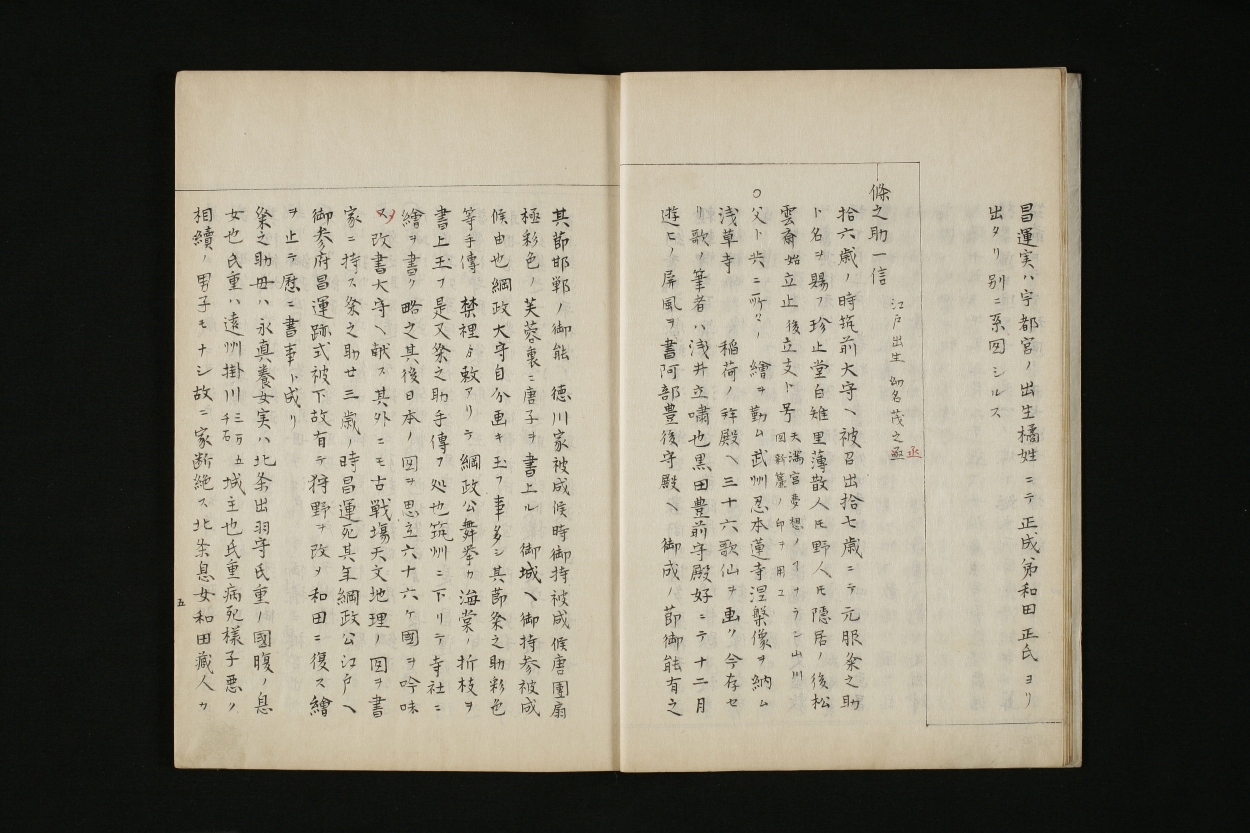 昌運実ハ宇都宮ノ出生橘姓ニテ正成弟和田正氏ヨリ
出タリ別ニ系図シルス
條之助一信 江戸出生 幼名茂之丞
拾六歳ノ時筑前大守ヘ被召出拾七歳ニテ元服条之助
ト名ヲ賜フ珍止堂白雉里薄散人ト𪜈野人𪜈隠居ノ後松
雲斎始立止後立支ト号 天満宮夢想ノ
山川
図新簾ノ印ヲ用ユ
○父ト共ニ所々ノ 繪ヲ勤ム武州忍本蓮寺涅槃像ヲ納ム
浅草寺 稲荷ノ拜殿ヘ三十六歌仙ヲ画ク今存セ
リ歌ノ筆者ハ浅井立嘯也黒田豊前守殿好ニテ十二月
遊ヒノ屏風ヲ書阿部豊後守殿ヘ 御成ノ節御能有之
其節邯鄲ノ御能 徳川家被成候時御持被成候唐團扇
極彩色ノ芙蓉裏ニ唐子ヲ書上ル 御城ヘ御持参被成
候由也綱政大守自分画キ玉フ事多シ其節条之助彩色
等手傳 禁裡ゟ敕アリテ綱政公舞拳カ海棠ノ折枝ヲ
書上玉フ是又条之助手傳フ処也筑州ニ下リテ寺社ニ
繪ヲ書ク略之其後日本ノ図ヲ思立六十六ケ國ヲ吟味
又改書大守ヘ献ス其外ニモ古戰塲天文地理ノ図ヲ書
家ニ持ス条之助廿三歳ノ時昌運死其年綱政公江戸ヘ
御参府昌運跡式被下故有テ狩野ヲ改メ和田ニ復ス繪
ヲ止テ暦ニ書事ト成リ
粂之助毋ハ永真養女実ハ北条出羽守氏重ノ國腹ノ息
女也氏重ハ遠州掛川三万五千石城主也氏重病死樣子悪ク
相續ノ男子モナシ故ニ家断絶ス北条息女和田藏人カ
五